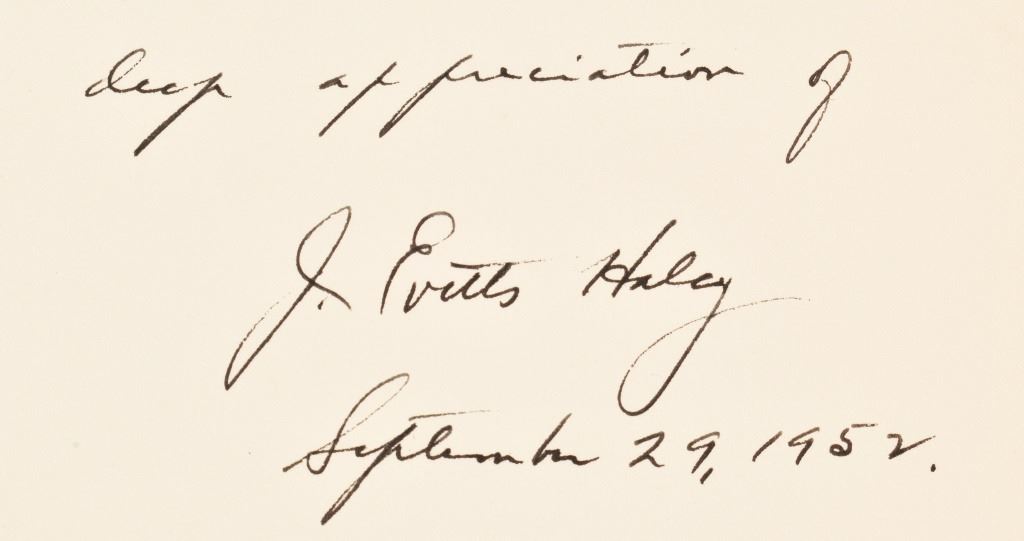 deep appreciation of
J. Evetts Haley
September 29, 1952.